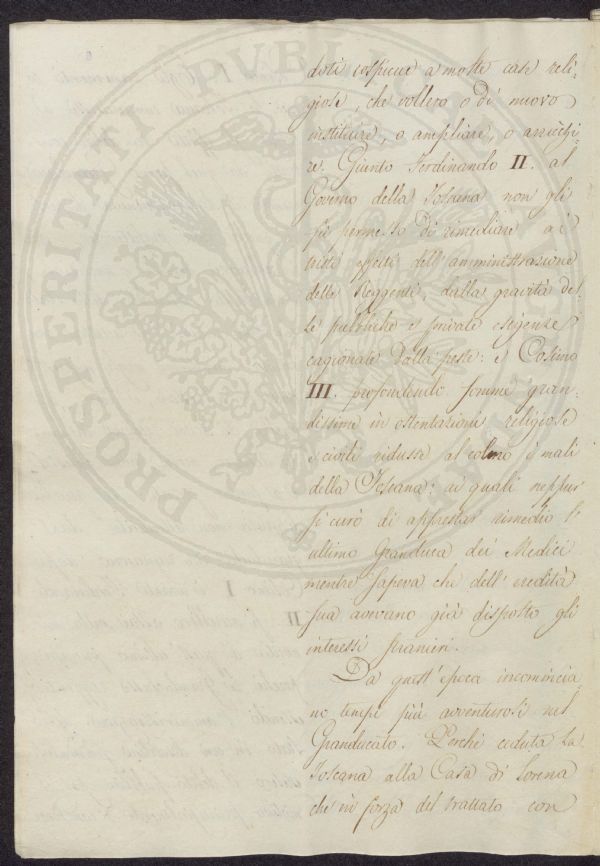 PROSPERITATI PVBLICAE
doti cospicue a molte case reli-
giose, che vollero o di nuovo
instituire, o ampliare, o aricchi-
re. Giunto Ferdinando II. al
Governo della Toscana non gli
fù permesso di rimediare ai
tristi effetti dell'amministrazione
delle Reggenti, dalla gravità del-
le pubbliche e private esigenze
cagionate dalla peste: e Cosimo
III. profondendo somme gran-
dissime in ostentazioni religiose
e civili ridusse al colmo i mali
della Toscana: ai quali neppur
si curò di apprestar rimedio l'
ultimo Granduca dei Medici
mentre sapeva che dell'eredità
sua avevano già disposto gli
interessi stranieri.
Da quest'epoca incomincia-
no tempi più avventurosi nel
Granducato. Perchè ceduta la
Toscana alla Casa di Lorena
che in forza del trattato con